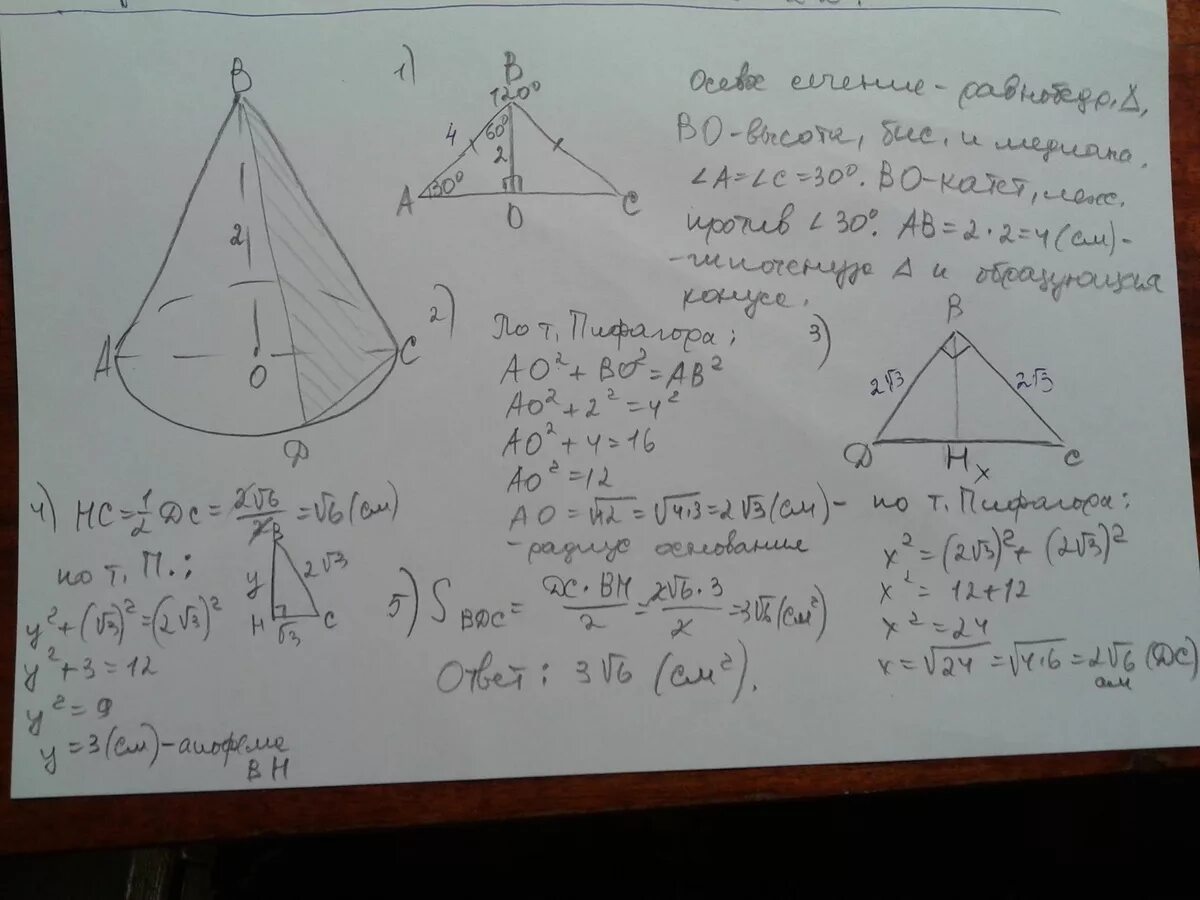 B
2
A
O
C
D
1)
B
120°
4
60°
2
A
30°
O
C
Осевое сечение - равнобедр. Δ,
BO - высота, бис. и медиана.
∠A = ∠C = 30°. BO - катет, леж.
против ∠30°. AB = 2 · 2 = 4 (см) -
- гипотенуза Δ и образующая
конуса.
2)
По т. Пифагора:
AO² + BO² = AB²
AO² + 2² = 4²
AO² + 4 = 16
AO² = 12
AO = √12 = √4·3 = 2√3 (см) -
- радиус основания
3)
B
2√3
2√3
D
H
x
C
по т. Пифагора:
x² = (2√3)² + (2√3)²
x² = 12 + 12
x² = 24
x = √24 = √4·6 = 2√6 (DC)
см
4) HC = 1/2 DC = 2√6/2 = √6 (см)
по т. П.:
B
y
2√3
H
√3
C
y² + (√3)² = (2√3)²
y² + 3 = 12
y² = 9
y = 3 (см) - апофема
BH
5) S BDC = DC · BH / 2 = 2√6 · 3 / 2 = 3√6 (см²)
Ответ: 3√6 (см²).